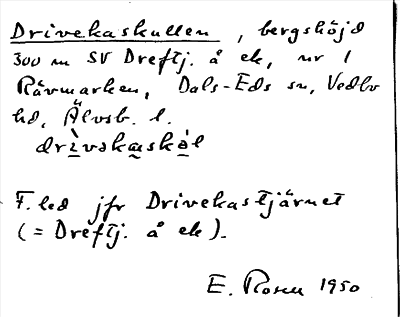 Drivekaskullen, bergshöjd
300 m SV Dreftj. å ek, nr 1
Rävmarken, Dals-Eds sn, Vedbo
hd, Älvsb. l.
drìvəkaskə̀l
F. led jfr Drivekastjärnet
(= Dreftj. å ek).
E. Rosen 1950